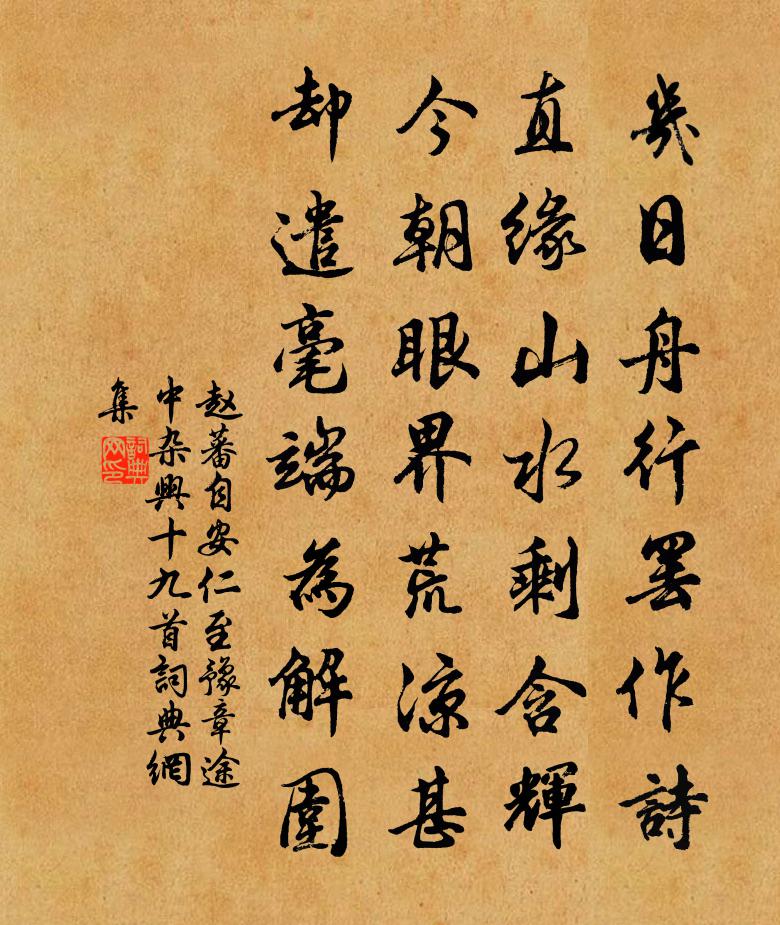 幾日舟行罢作詩
直緣山水剩含輝
今朝眼界荒涼甚
却遣毫端為解圍
赵蕃自安仁至豫章途
中杂興十九首詞典網
集
詞典
网印